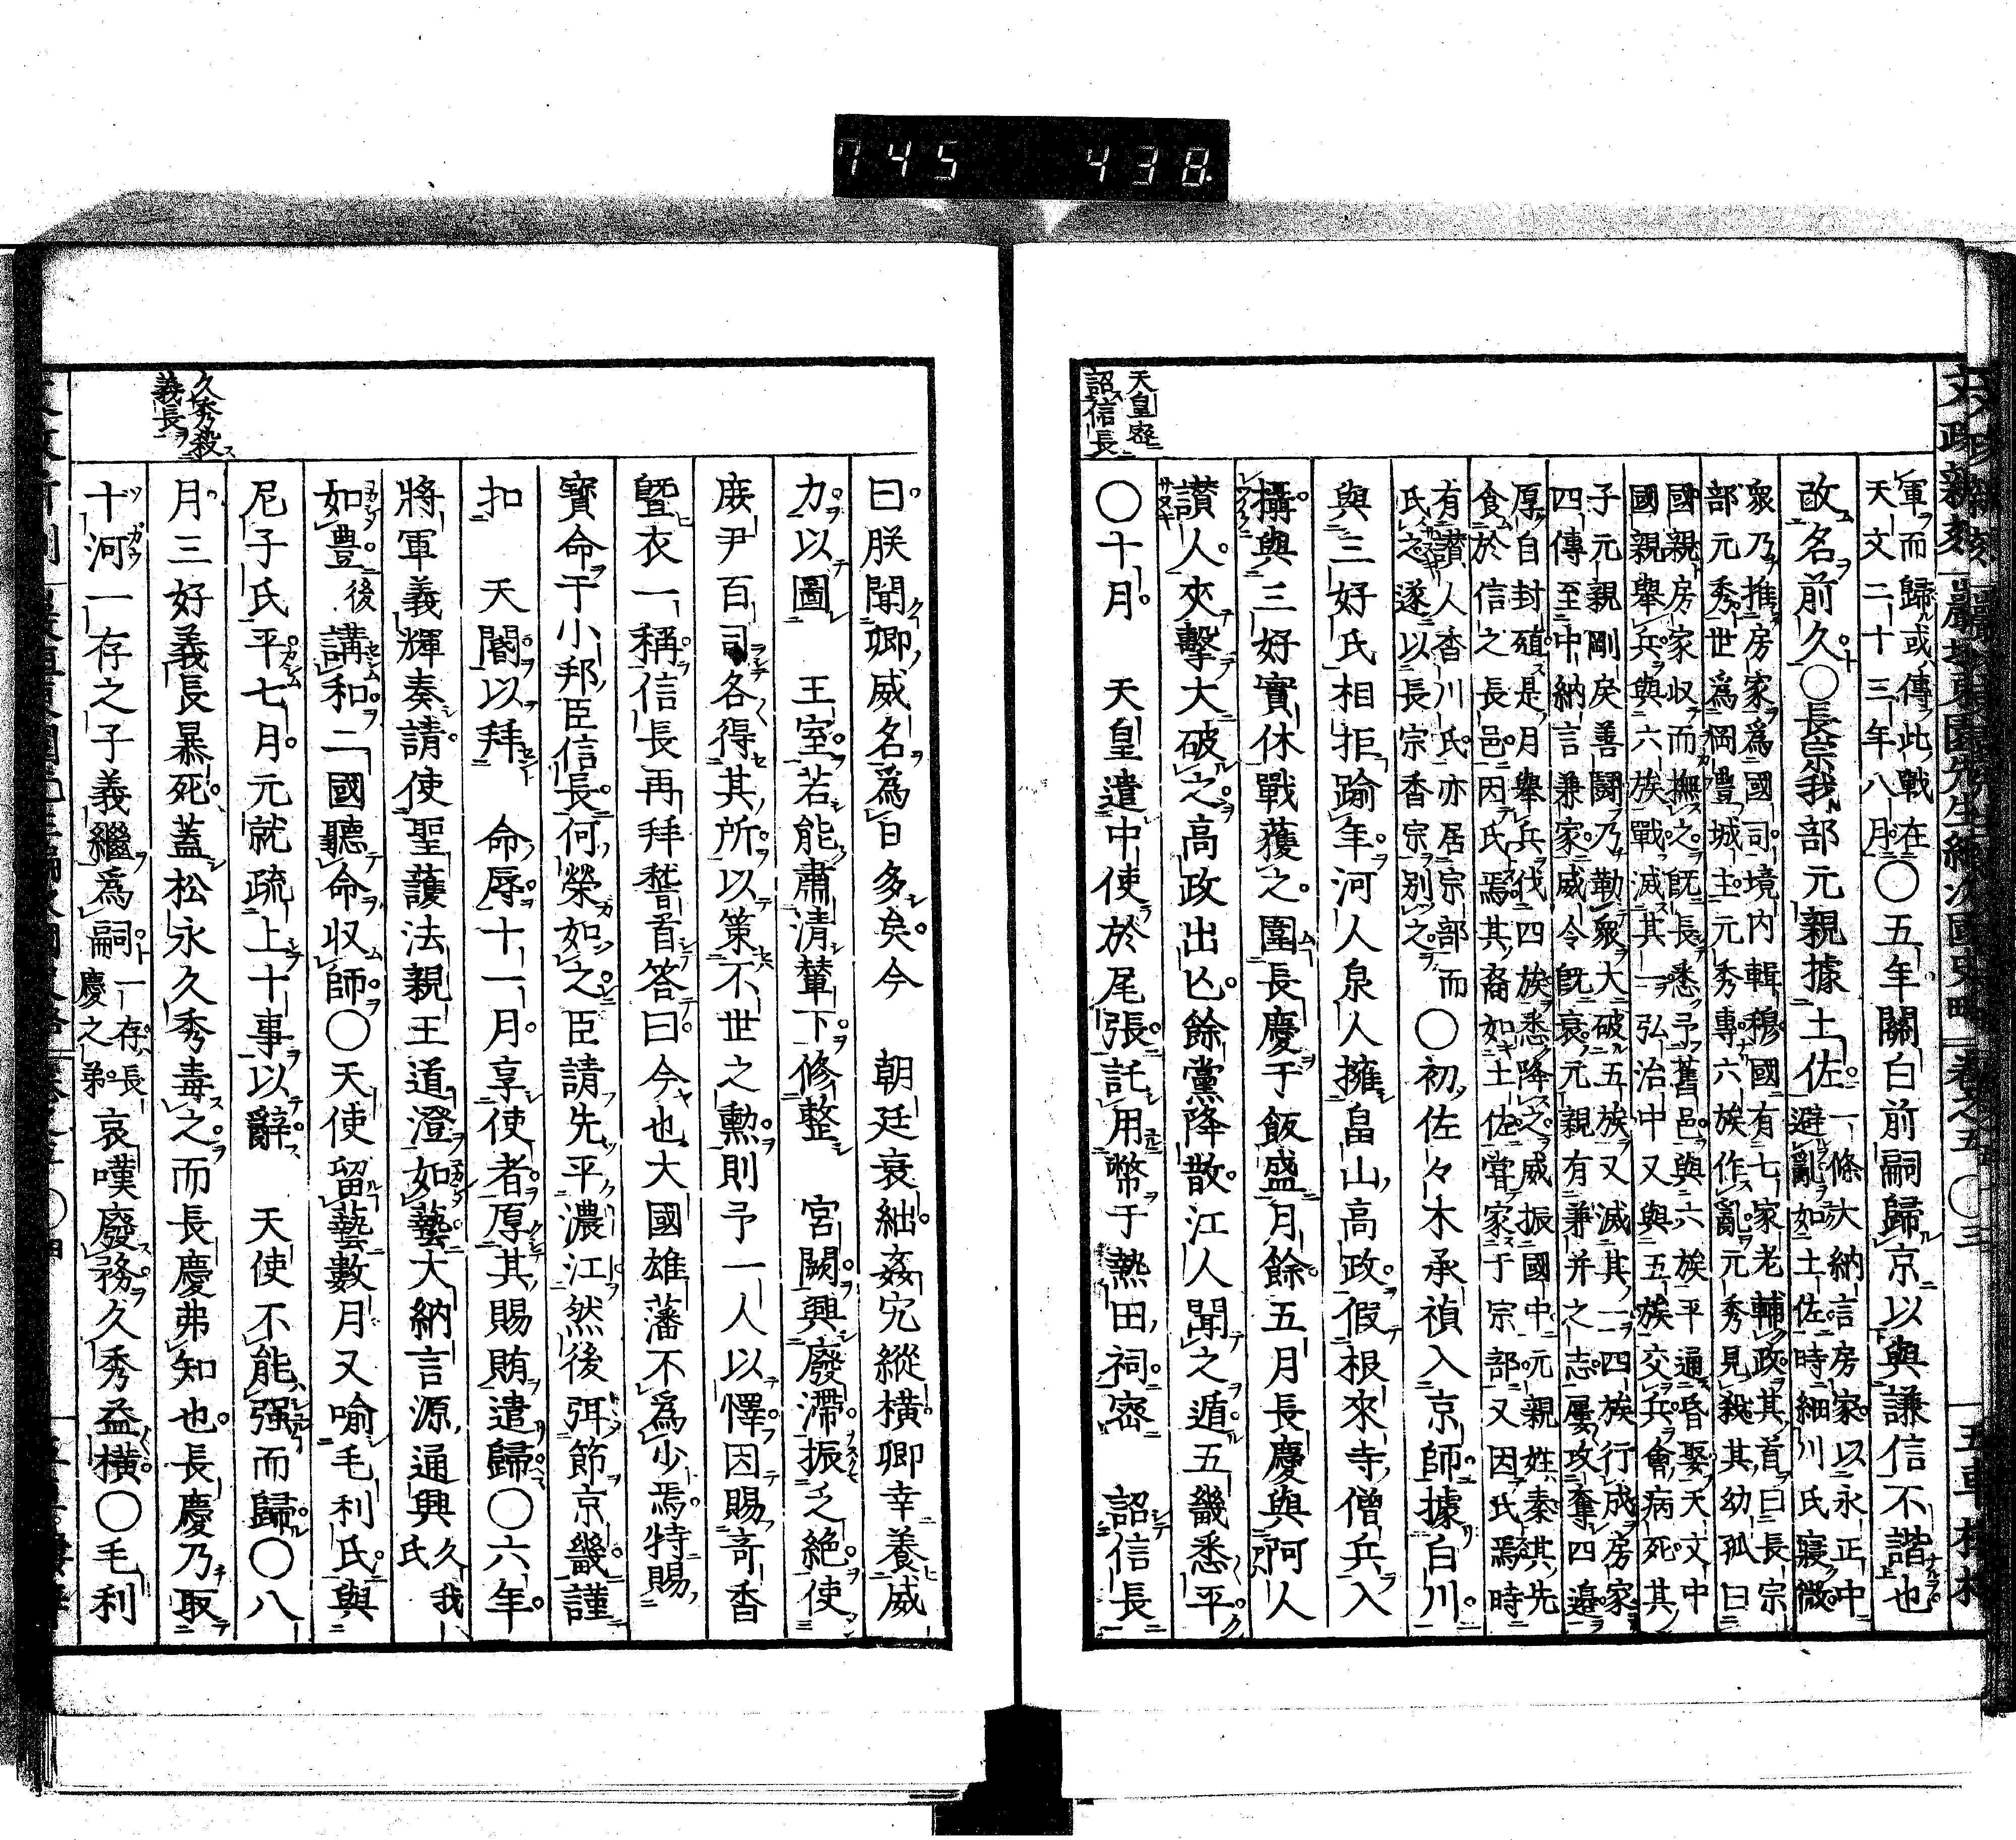 745 438
天皇密
詔信長
軍而歸或傳此戰在
天文二十三年八月
〇五年關白前嗣歸京以與謙信不諧也
改名前久〇長宗我部元親據土佐
一條大納言房家以永正中
避亂如土佐時細川氏寢微
衆乃推房家爲國司境内輯穆國有七家老輔政其首曰長宗
部元秀世爲岡豐城主元秀專六族作亂元秀見殺其幼孤曰
國親房家収而撫之既長悉予舊邑與六族平通昏娶天文中
國親舉兵與六族戰滅其一弘治中又與五族交兵會病死其
子元親剛戾善鬪乃勒衆大破五族又滅其一四族行成房家
四傳至中納言兼家威令既衰元親有兼并之志屢攻奪四邉
厚自封殖是月舉兵伐四族悉降之威振國中元親姓秦其先
食於信之長邑因氏焉其裔如土佐嘗家于宗部又因氏焉時
有讃人香川氏亦居宗部而
氏之遂以長宗香宗別之
〇初佐々木承禎入京師據白川
與三好氏相拒踰年河人泉人擁畠山高政假根來寺僧兵入
攝與三好實休戰獲之圍長慶于飯盛月餘五月長慶與阿人
讃人夾擊大破之高政出亡餘黨降散江人聞之遁五畿悉平
〇十月　天皇遣中使於尾張託用幣于熱田祠密　詔信長
文政新刻
卷之五　〇三
久秀殺
義長
曰朕聞卿威名爲日多矣今　朝廷衰絀姦宄縱橫卿幸養威
力以圖　王室若能肅清輦下修整　宮闕興廢滯振乏絶使
庶尹百司各得其所以策不世之勳則予一人以懌因賜奇香
暨衣一稱信長再拜稽首答曰今也大國雄藩不爲少焉特賜
寶命于小邦臣信長何榮如之臣請先平濃江然後弭節京畿謹
扣　天閽以拜　命辱十一月享使者厚其賜賄遣歸〇六年
將軍義輝奏請使聖護法親王道澄如藝大納言源通興久我氏
如豐後講和二國聽命収師〇天使留藝數月又喻毛利氏與
尼子氏平七月元就疏上十事以辭　天使不能强而歸〇八
月三好義長暴死蓋松永久秀毒之而長慶弗知也長慶乃取
十河一存之子義繼爲嗣一存長慶之弟哀嘆廢務久秀益橫〇毛利